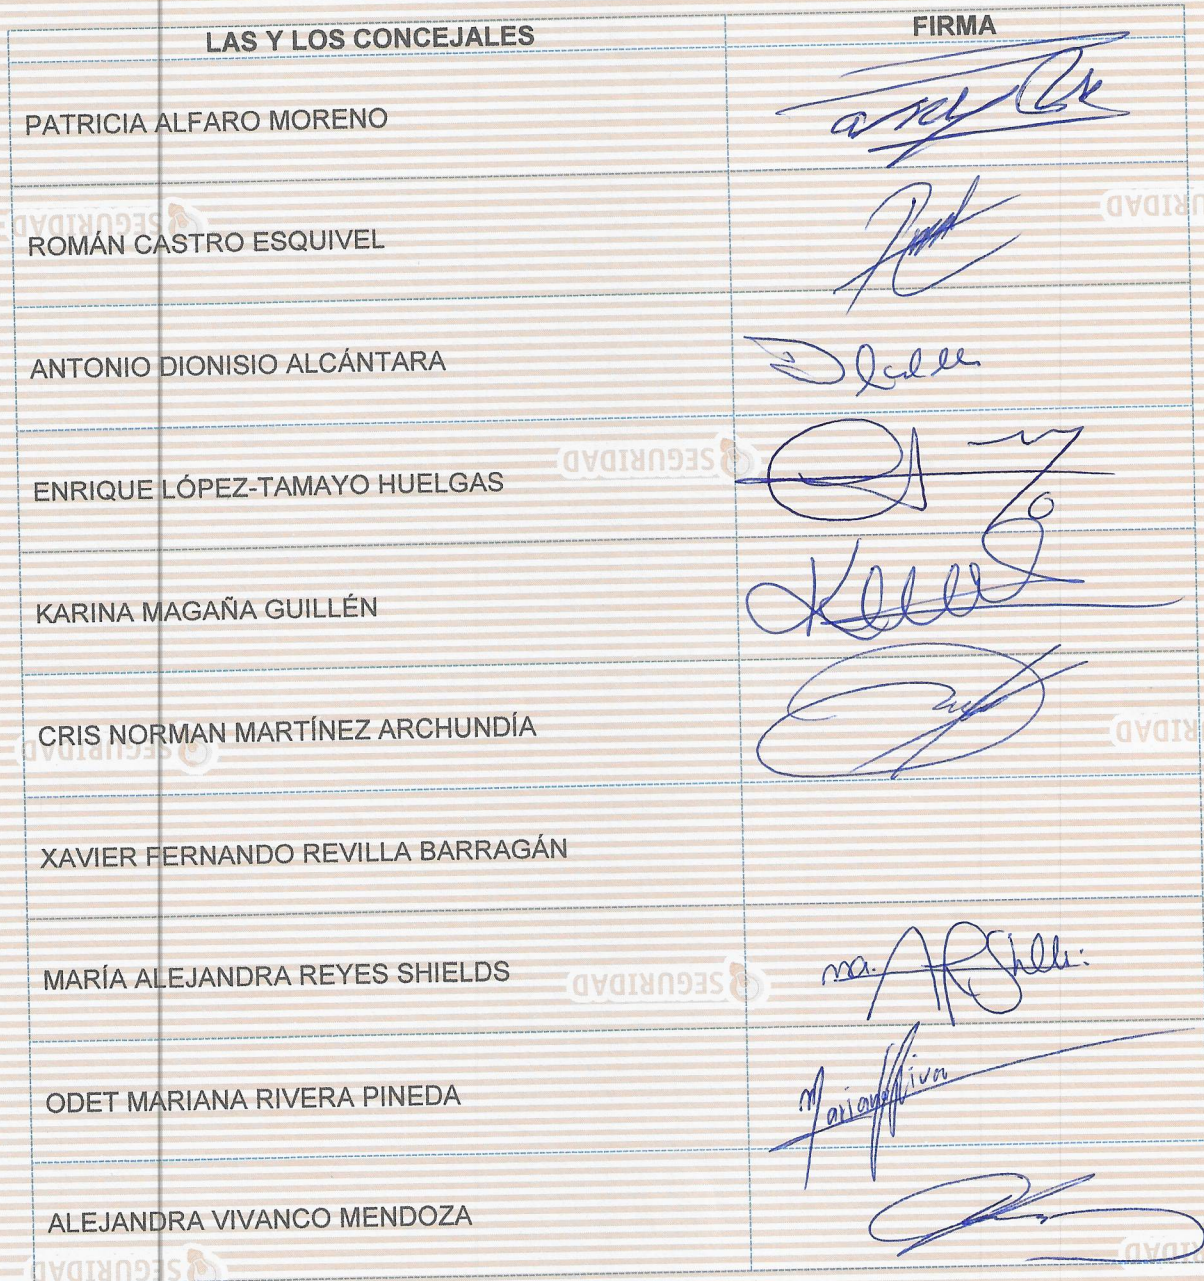 LAS Y LOS CONCEJALES FIRMA
PATRICIA ALFARO MORENO
SEGURIDAD
ROMÁN CASTRO ESQUIVEL
ANTONIO DIONISIO ALCÁNTARA
SEGURIDAD
ENRIQUE LÓPEZ-TAMAYO HUELGAS
KARINA MAGAÑA GUILLÉN
CRIS NORMAN MARTÍNEZ ARCHUNDÍA
SEGURIDAD
XAVIER FERNANDO REVILLA BARRAGÁN
MARÍA ALEJANDRA REYES SHIELDS ma. ARShields
SEGURIDAD
ODET MARIANA RIVERA PINEDA
ALEJANDRA VIVANCO MENDOZA
SEGURIDAD